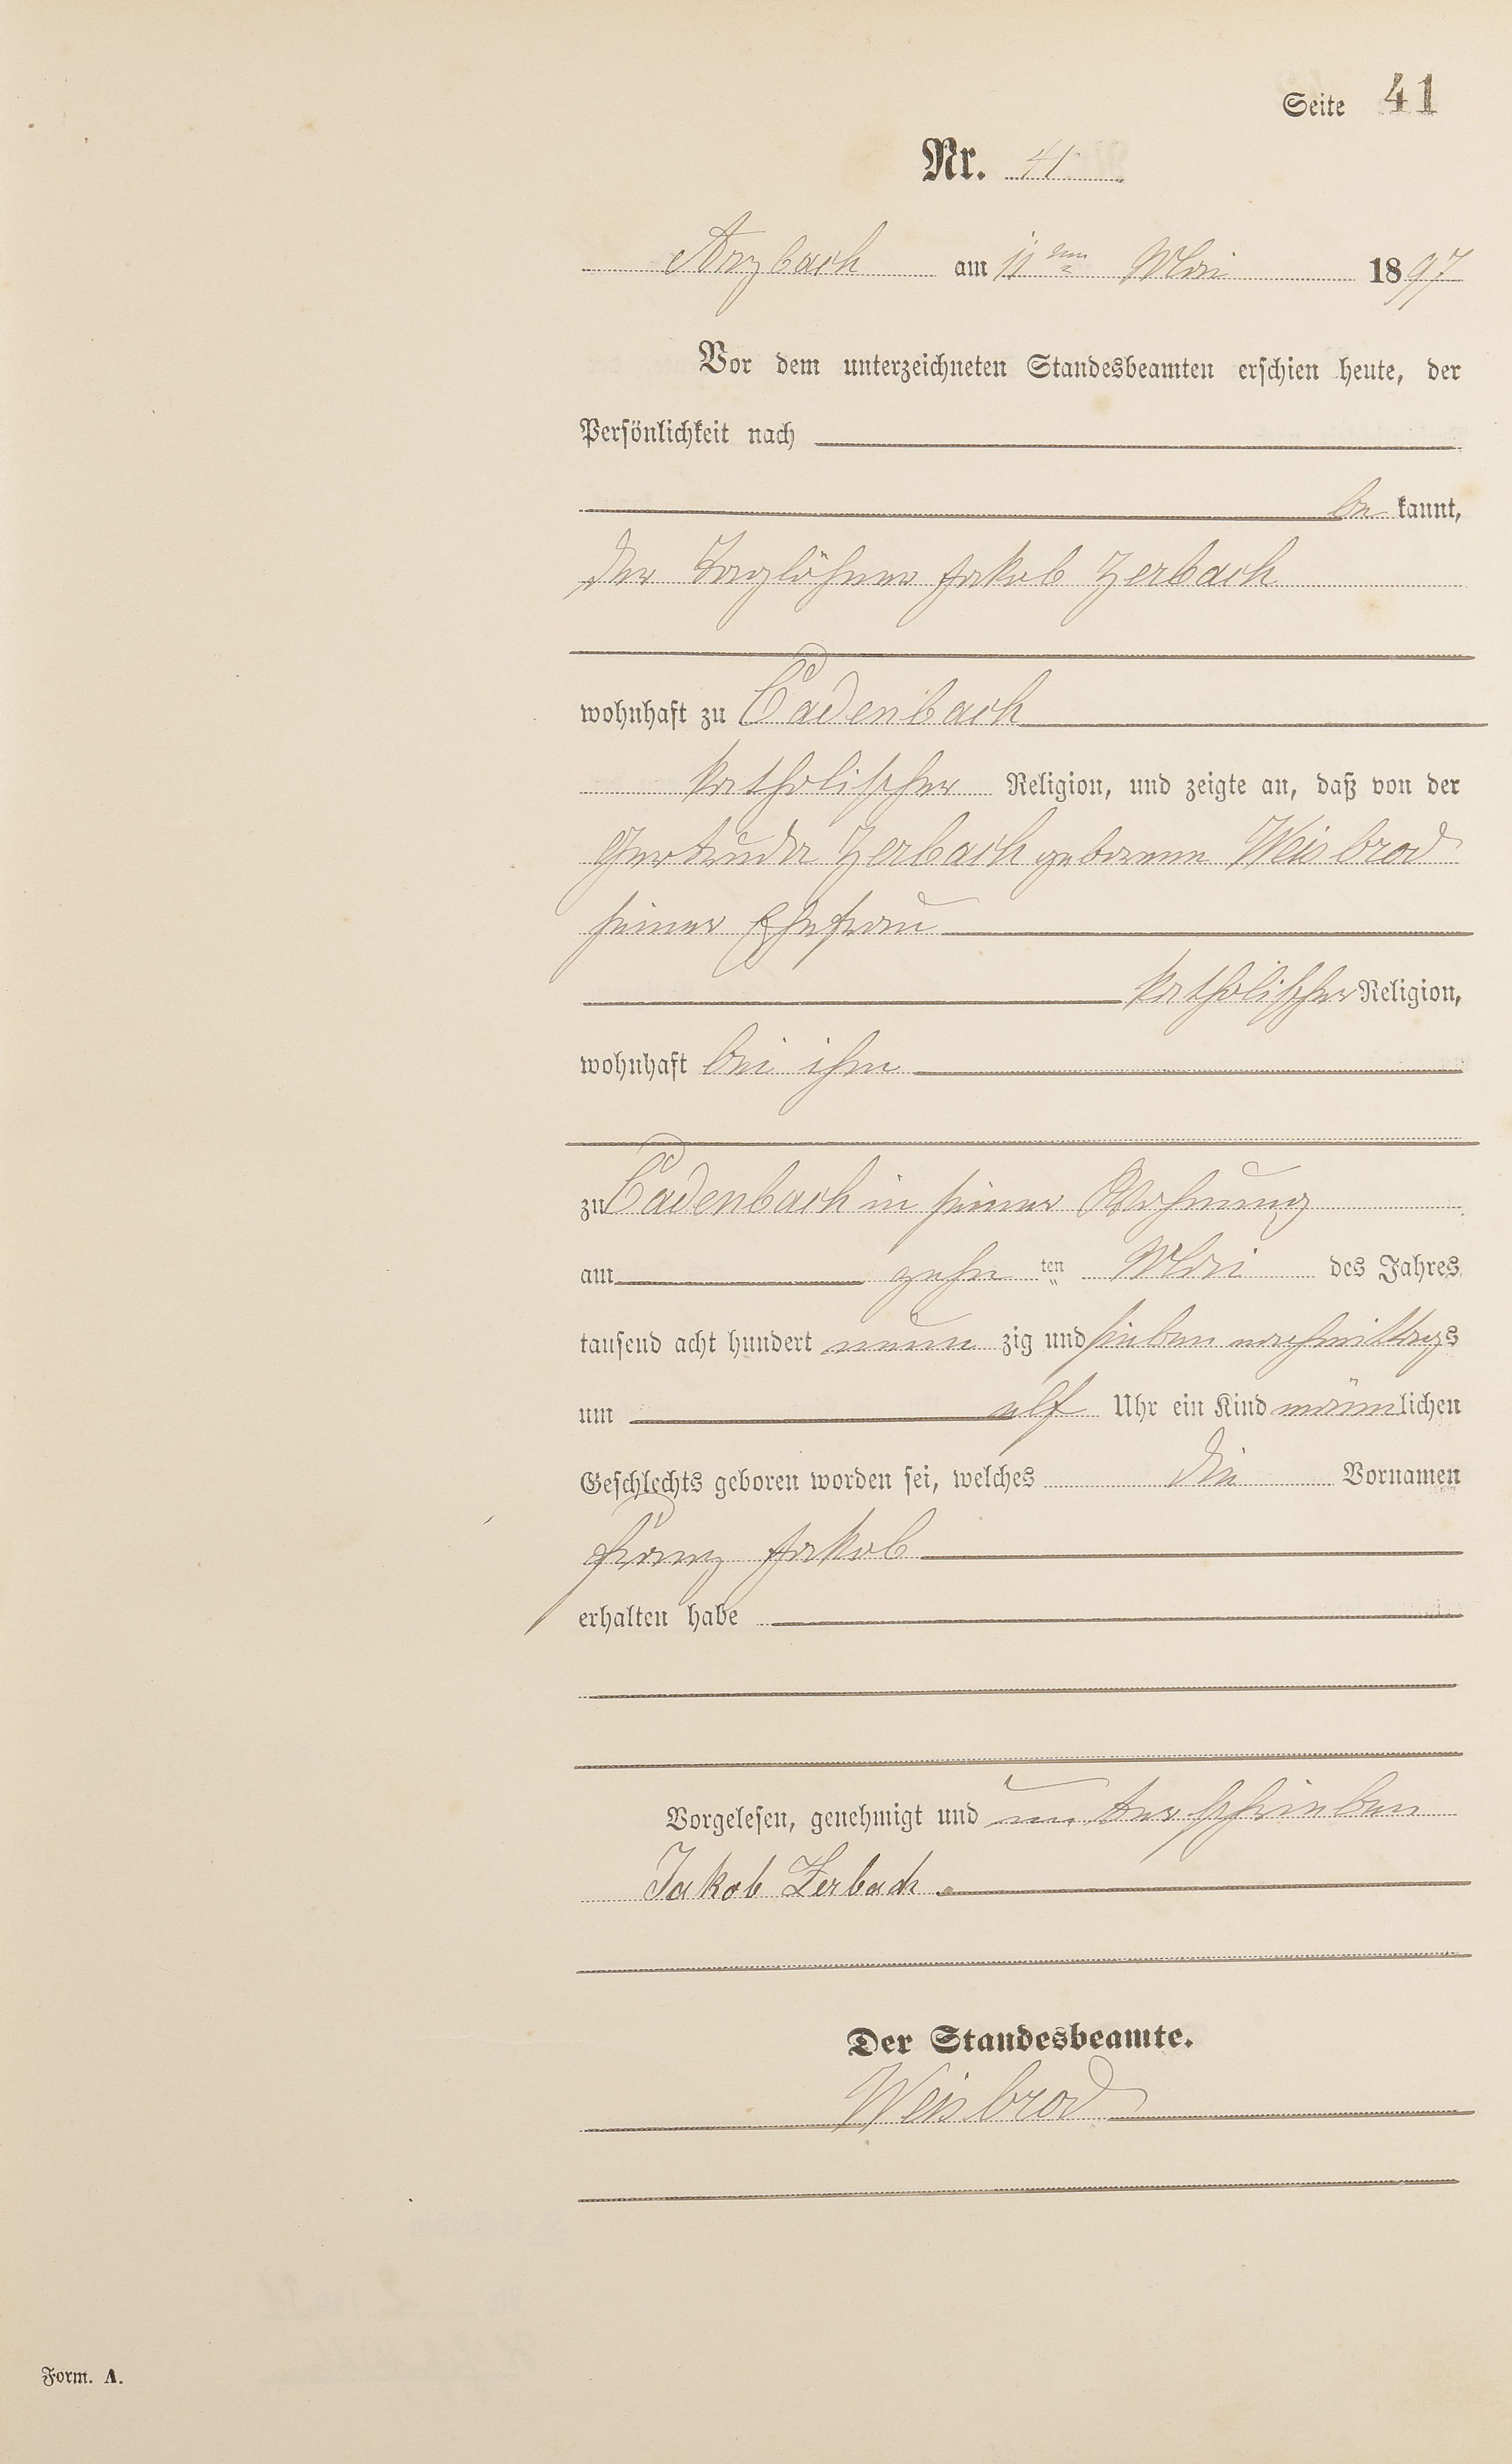 Seite 41
Nr. 41
Arzbach am 11ten Mai 1897
Vor dem unterzeichneten Standesbeamten erschien heute, der
Persönlichkeit nach
be kannt,
der Taglöhner Jakob Zerbach
wohnhaft zu Cadenbach
katholischer Religion, und zeigte an, daß von der
Gertruda Zerbach geborene Weisbrod
seiner Ehefrau
katholischer Religion,
wohnhaft bei ihm
zu Cadenbach in seiner Wohnung
am zehn ten Mai des Jahres
tausend acht hundert neun zig und sieben nachmittags
um elf Uhr ein Kind männlichen
Geschlechts geboren worden sei, welches die Vornamen
Franz Jakob
erhalten habe
Vorgelesen, genehmigt und unterschrieben
Jakob Zerbach.
Der Standesbeamte.
Weisbrod
Form. A.